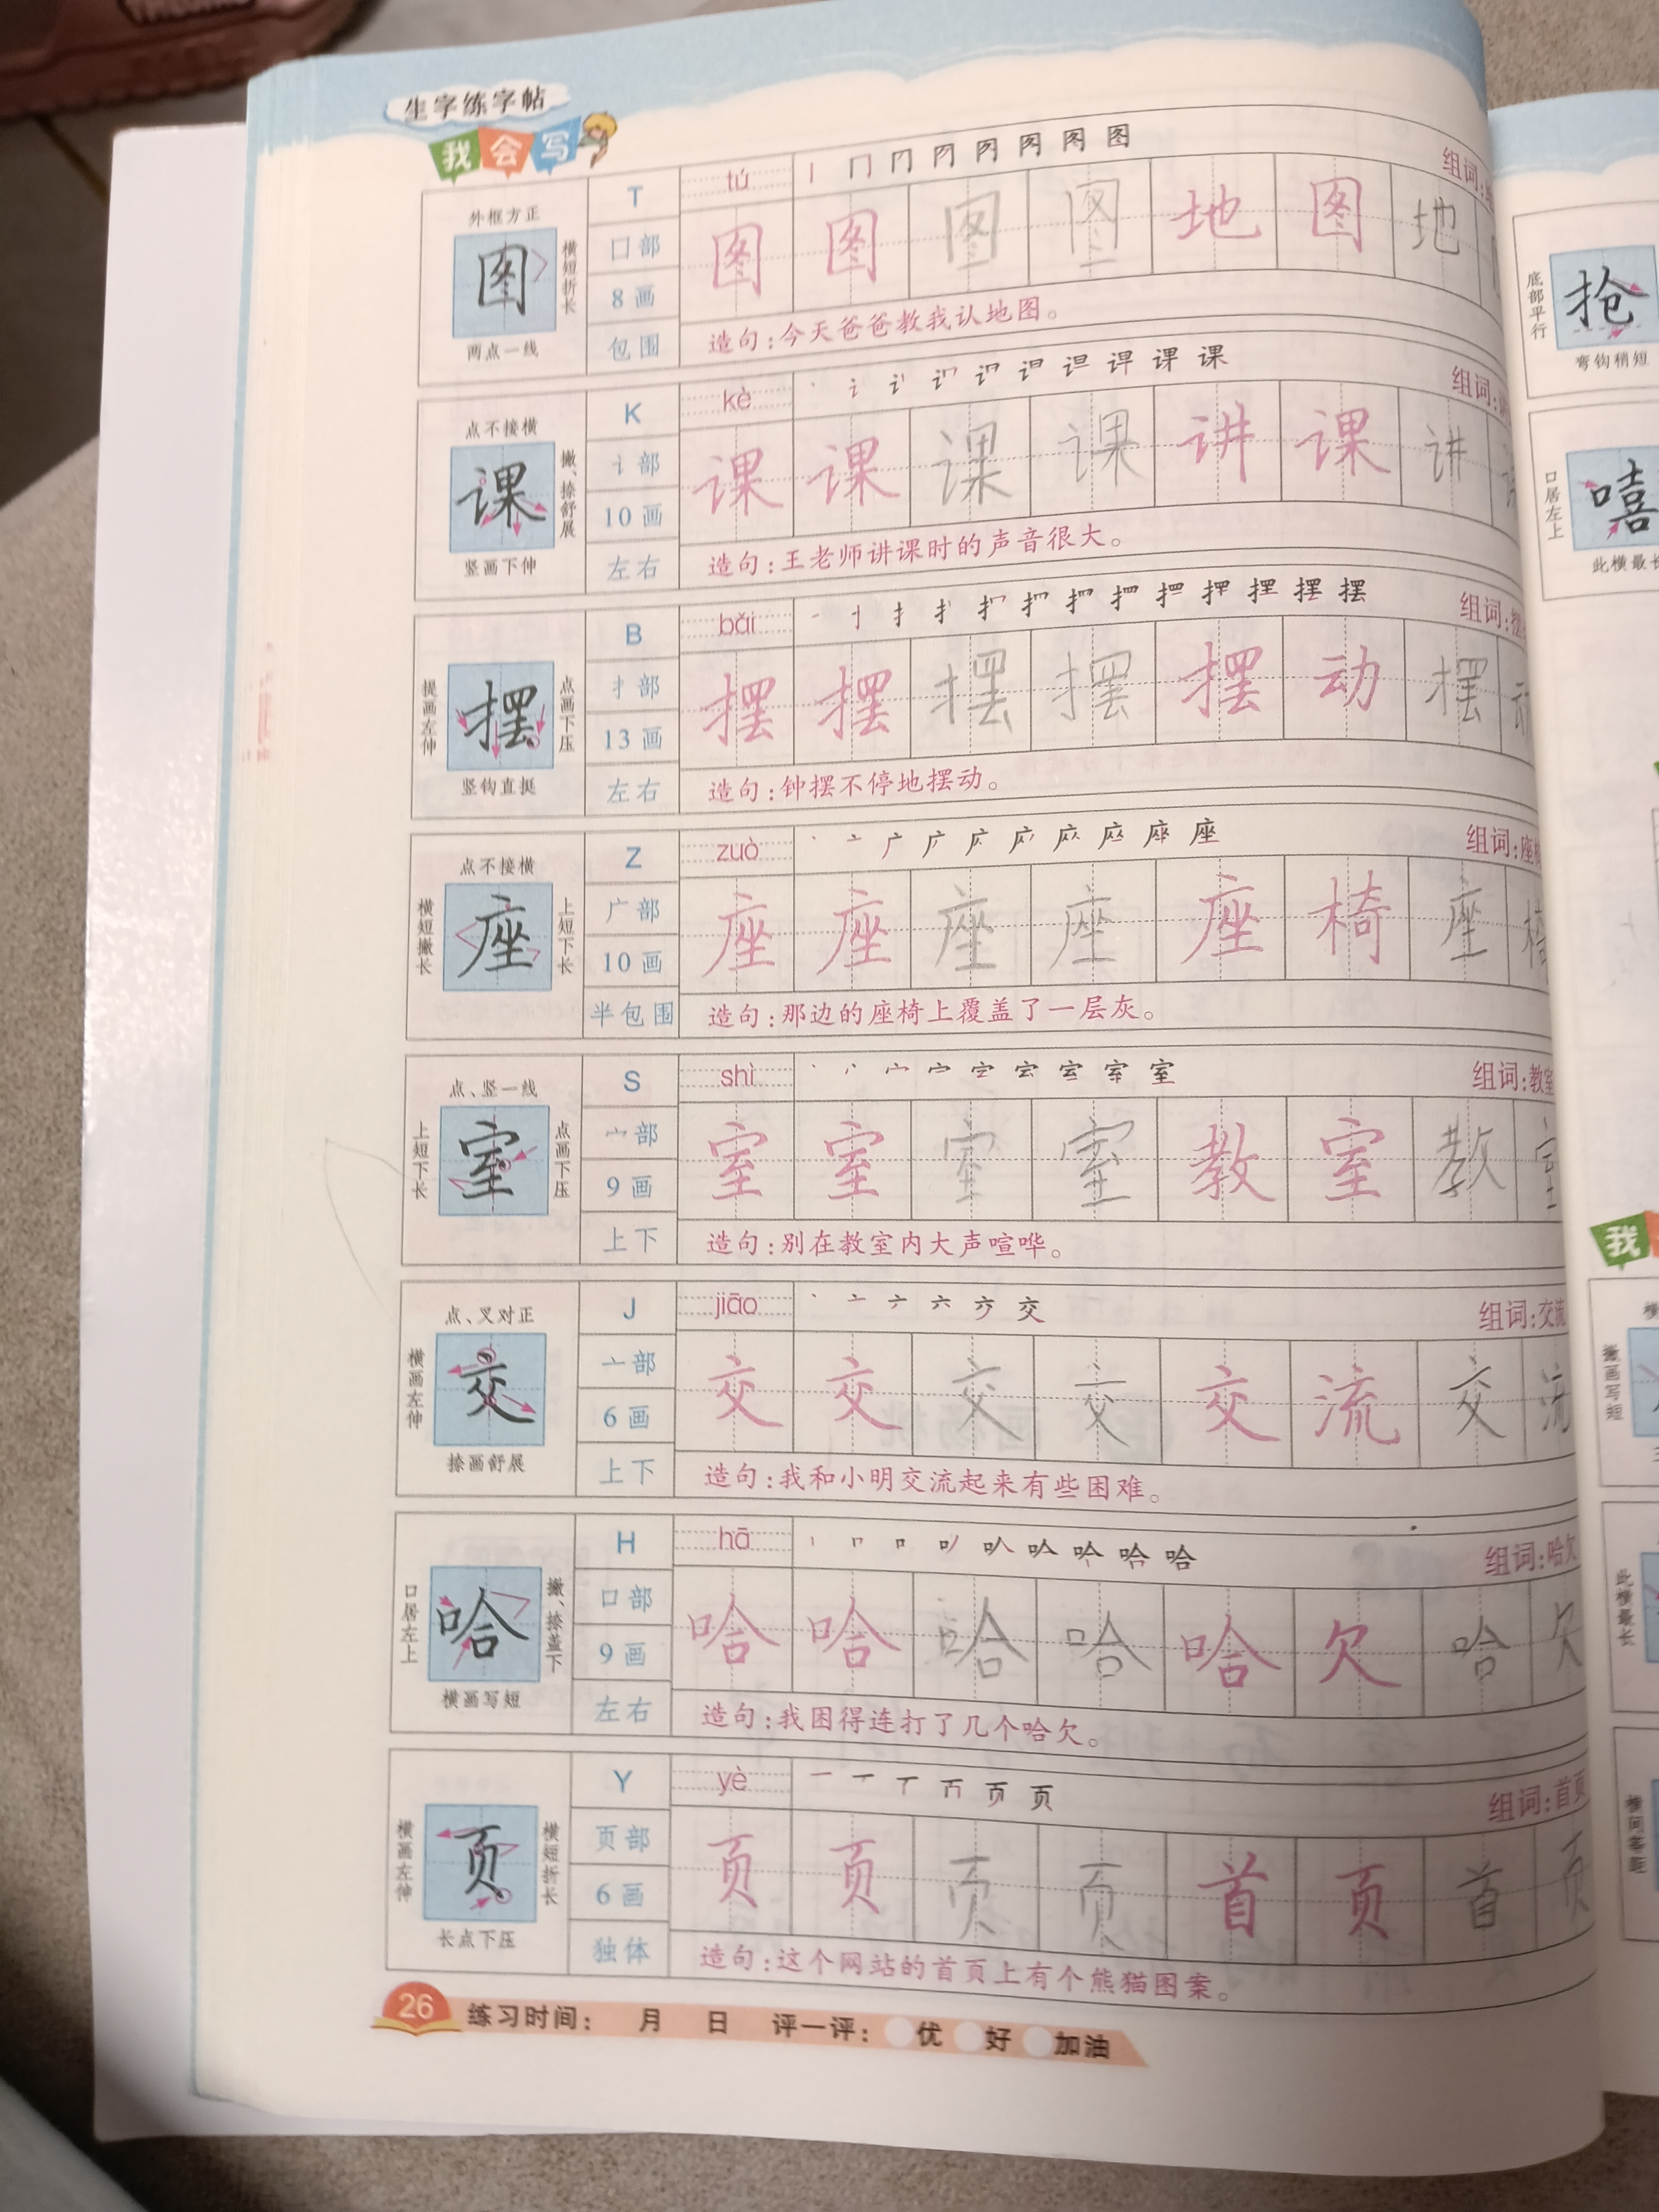 生字练字帖
我会写
外框方正
图
横短折长
两点一线
T
口部
8画
包围
tú
丨 冂 图
组词:
图 图 图 图 地 图 地
造句:今天爸爸教我认地图。
点不接横
课
撇、捺舒展
竖画下伸
K
讠部
10画
左右
kè
课
组词:
课 课 课 课 讲 课 讲
造句:王老师讲课时的声音很大。
提画左伸
摆
点画下压
竖钩直挺
B
扌部
13画
左右
bǎi
摆
组词:摆
摆 摆 摆 摆 摆 动 摆 动
造句:钟摆不停地摆动。
点不接横
横短撇长
座
上短下长
Z
广部
10画
半包围
zuò
座
组词:座椅
座 座 座 座 座 椅 座 椅
造句:那边的座椅上覆盖了一层灰。
点、竖一线
上短下长
室
点画下压
S
宀部
9画
上下
shì
室
组词:教室
室 室 室 室 教 室 教 室
造句:别在教室内大声喧哗。
点、叉对正
横画左伸
交
捺画舒展
J
亠部
6画
上下
jiāo
丶 亠 六 交
组词:交流
交 交 交 交 交 流 交 流
造句:我和小明交流起来有些困难。
口居左上
哈
撇、捺盖下
横画写短
H
口部
9画
左右
hā
哈
组词:哈欠
哈 哈 哈 哈 哈 欠 哈 欠
造句:我困得连打了几个哈欠。
横画左伸
页
横短折长
长点下压
Y
页部
6画
独体
yè
页
组词:首页
页 页 页 页 首 页 首 页
造句:这个网站的首页上有个熊猫图案。
26 练习时间: 月 日 评一评: 优 好 加油
底部平行
抢
弯钩稍短
口居左上
嘻
此横最长
我
撇画写短
此横最长
横间等距